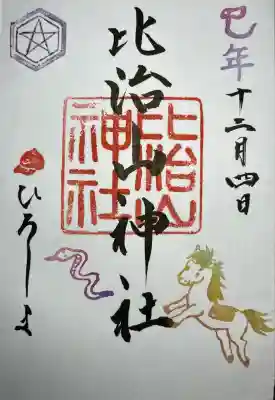 巳年
十二月四日
比治山神社
比治山
神社
ひろしま